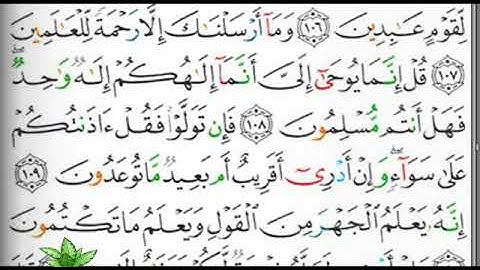 لِّقَوْمٍ عَٰبِدِينَ ١٠٦ وَمَآ أَرْسَلْنَٰكَ إِلَّا رَحْمَةً لِّلْعَٰلَمِينَ
١٠٧ قُلْ إِنَّمَا يُوحَىٰٓ إِلَىَّ أَنَّمَآ إِلَٰهُكُمْ إِلَٰهٌ وَٰحِدٌ
فَهَلْ أَنتُم مُّسْلِمُونَ ١٠٨ فَإِن تَوَلَّوْا۟ فَقُلْ ءَاذَنتُكُمْ
عَلَىٰ سَوَآءٍ وَإِنْ أَدْرِىٓ أَقَرِيبٌ أَم بَعِيدٌ مَّا تُوعَدُونَ ١٠٩
إِنَّهُۥ يَعْلَمُ الْجَهْرَ مِنَ الْقَوْلِ وَيَعْلَمُ مَا تَكْتُمُونَ